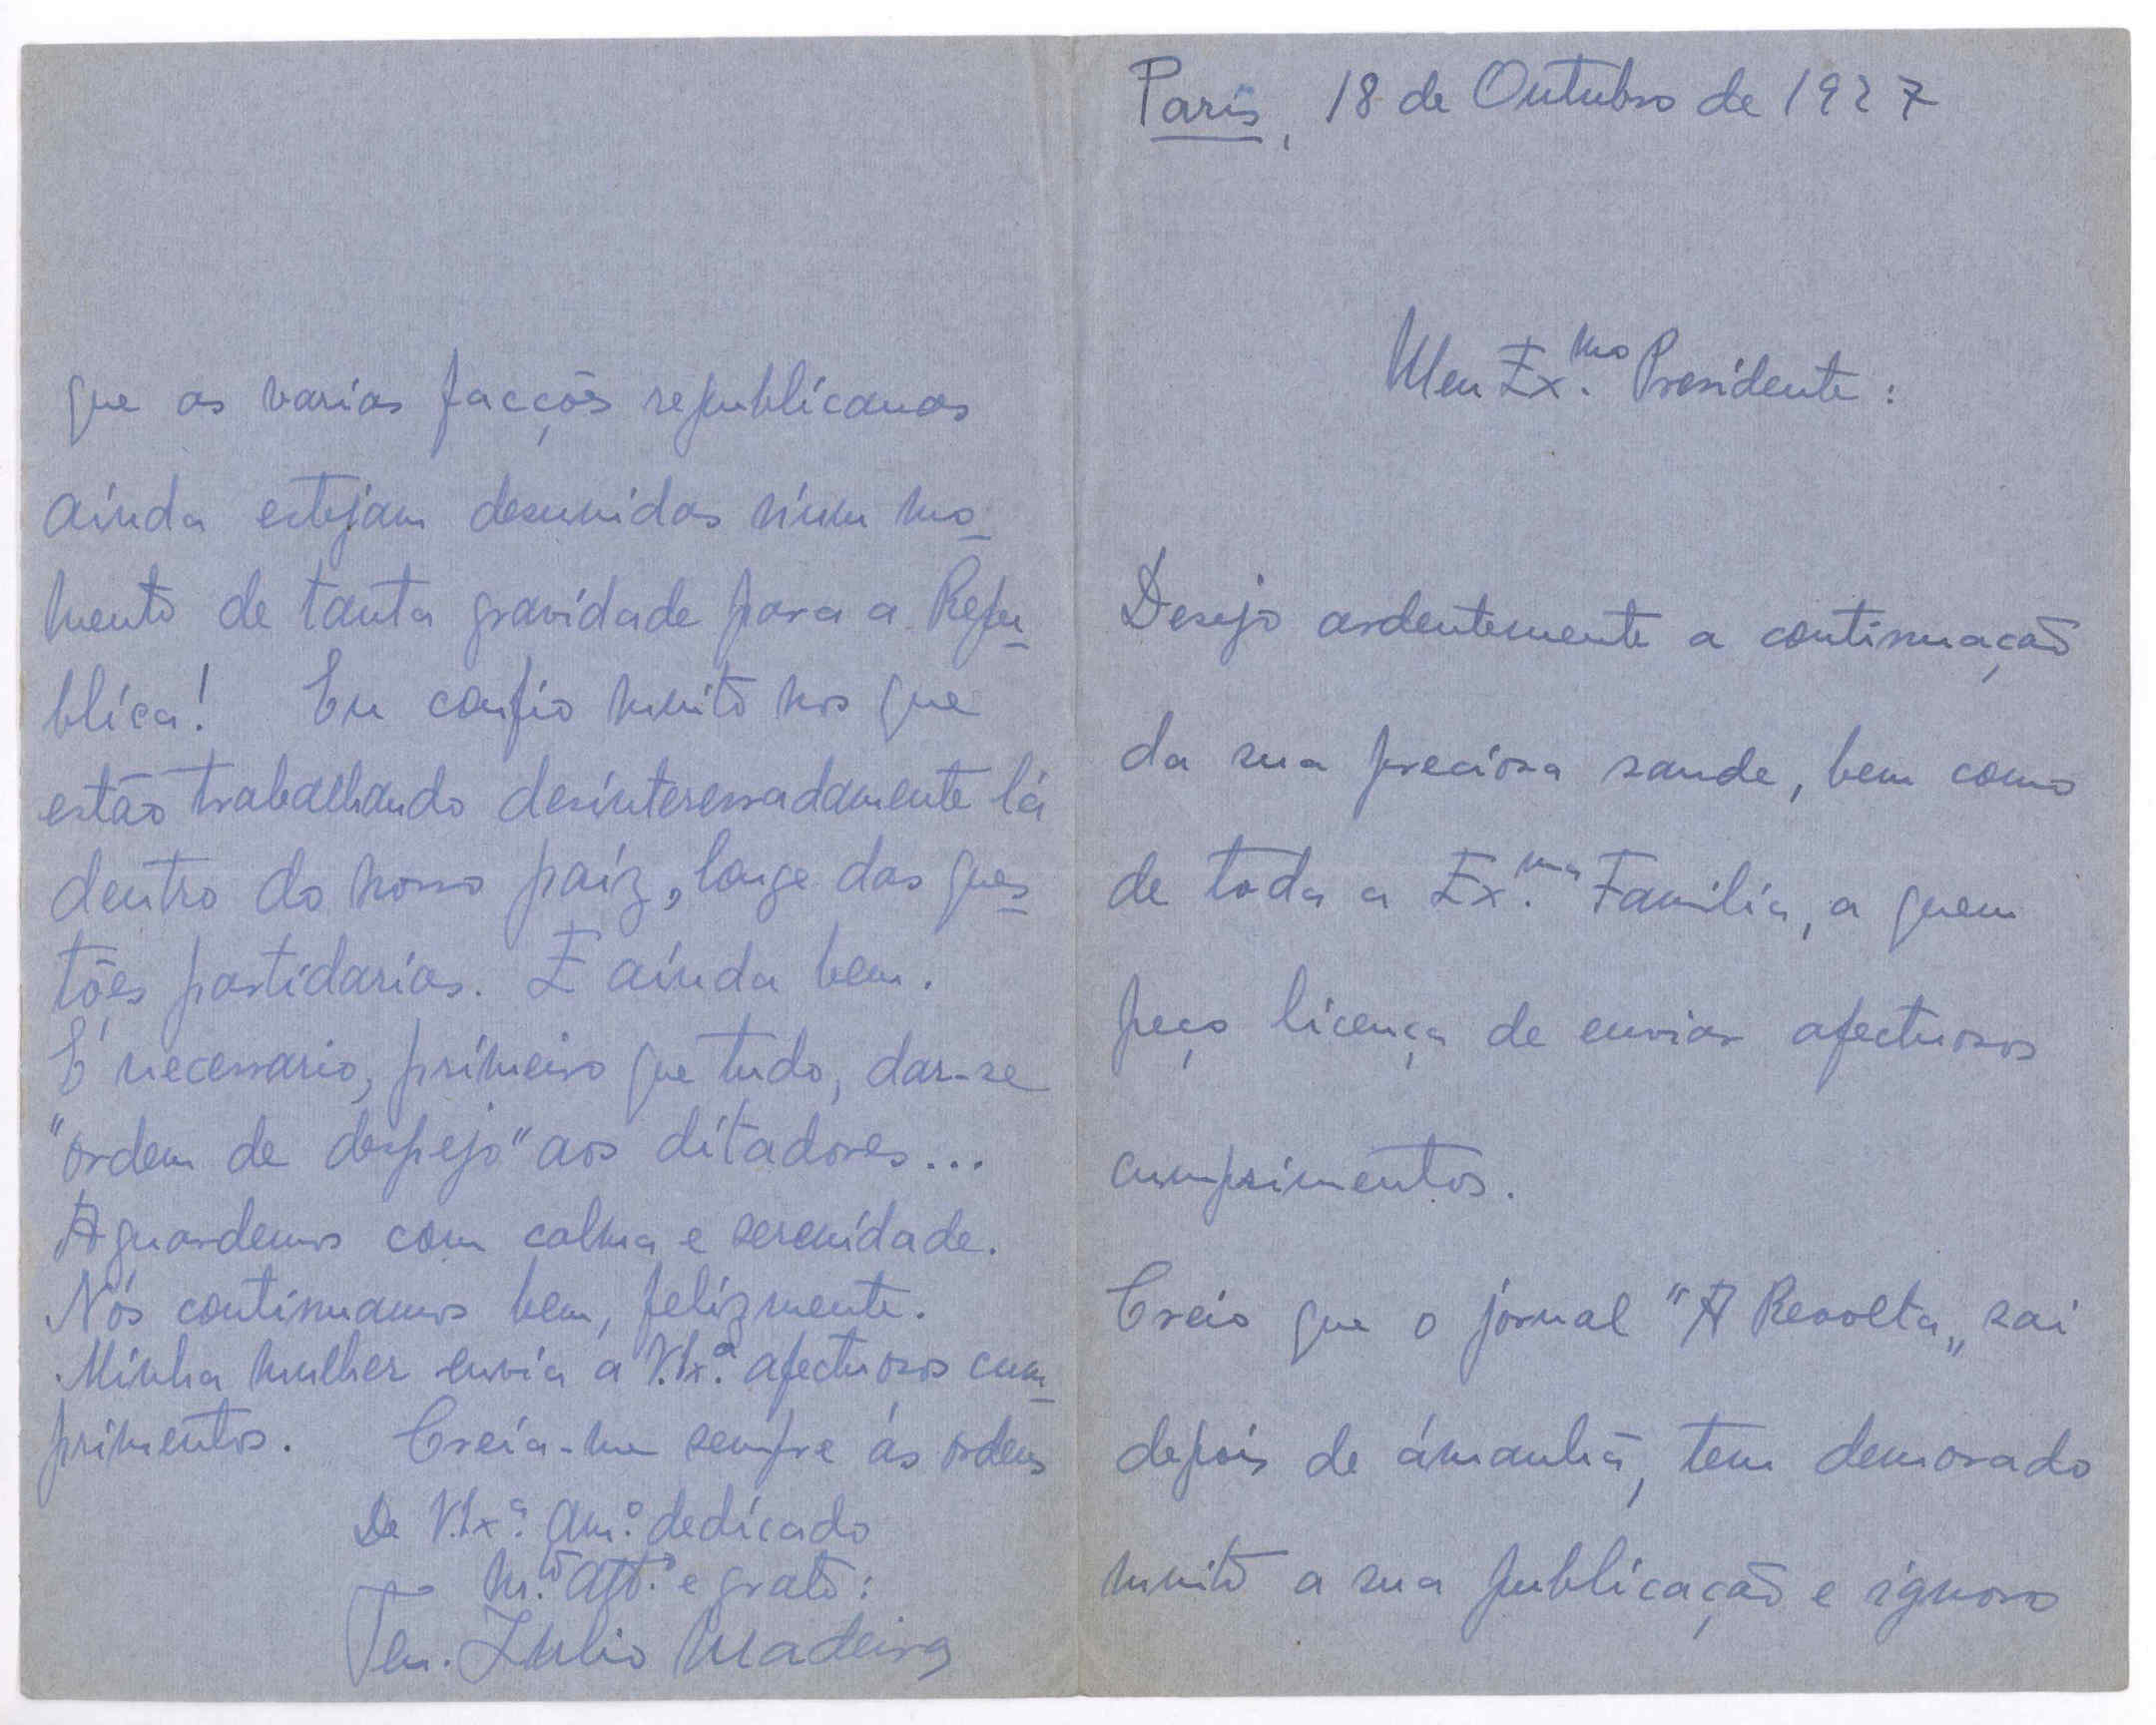 Paris, 18 de Outubro de 1927
Meu Ex.mo Presidente:
Desejo ardentemente a continuação
da sua preciosa saude, bem como
de toda a Ex.ma Familia, a quem
peço licença de enviar afectuosos
cumprimentos.
Creio que o jornal "A Revolta„ sai
depois de ámanhã, tem demorado
muito a sua publicação e ignoro
que as varias facções republicanas
ainda estejam desunidas núm mo-
mento de tanta gravidade para a Repu-
blica! Eu confio muito nos que
estão trabalhando desinteressadamente lá
dentro do nosso paíz, longe das ques-
tões partidarias. E ainda bem.
É necessario, primeiro que tudo, dar-se
"ordem de despejo" aos ditadores...
Aguardemos com calma e serenidade.
Nós continuamos bem, felizmente.
Minha mulher envia a V.Ex.ª afectuosos cum-
primentos. Creia-me sempre ás ordens
De V.Ex.ª am.º dedicado
m.to att.º e grato:
Ten. Julio Madeira